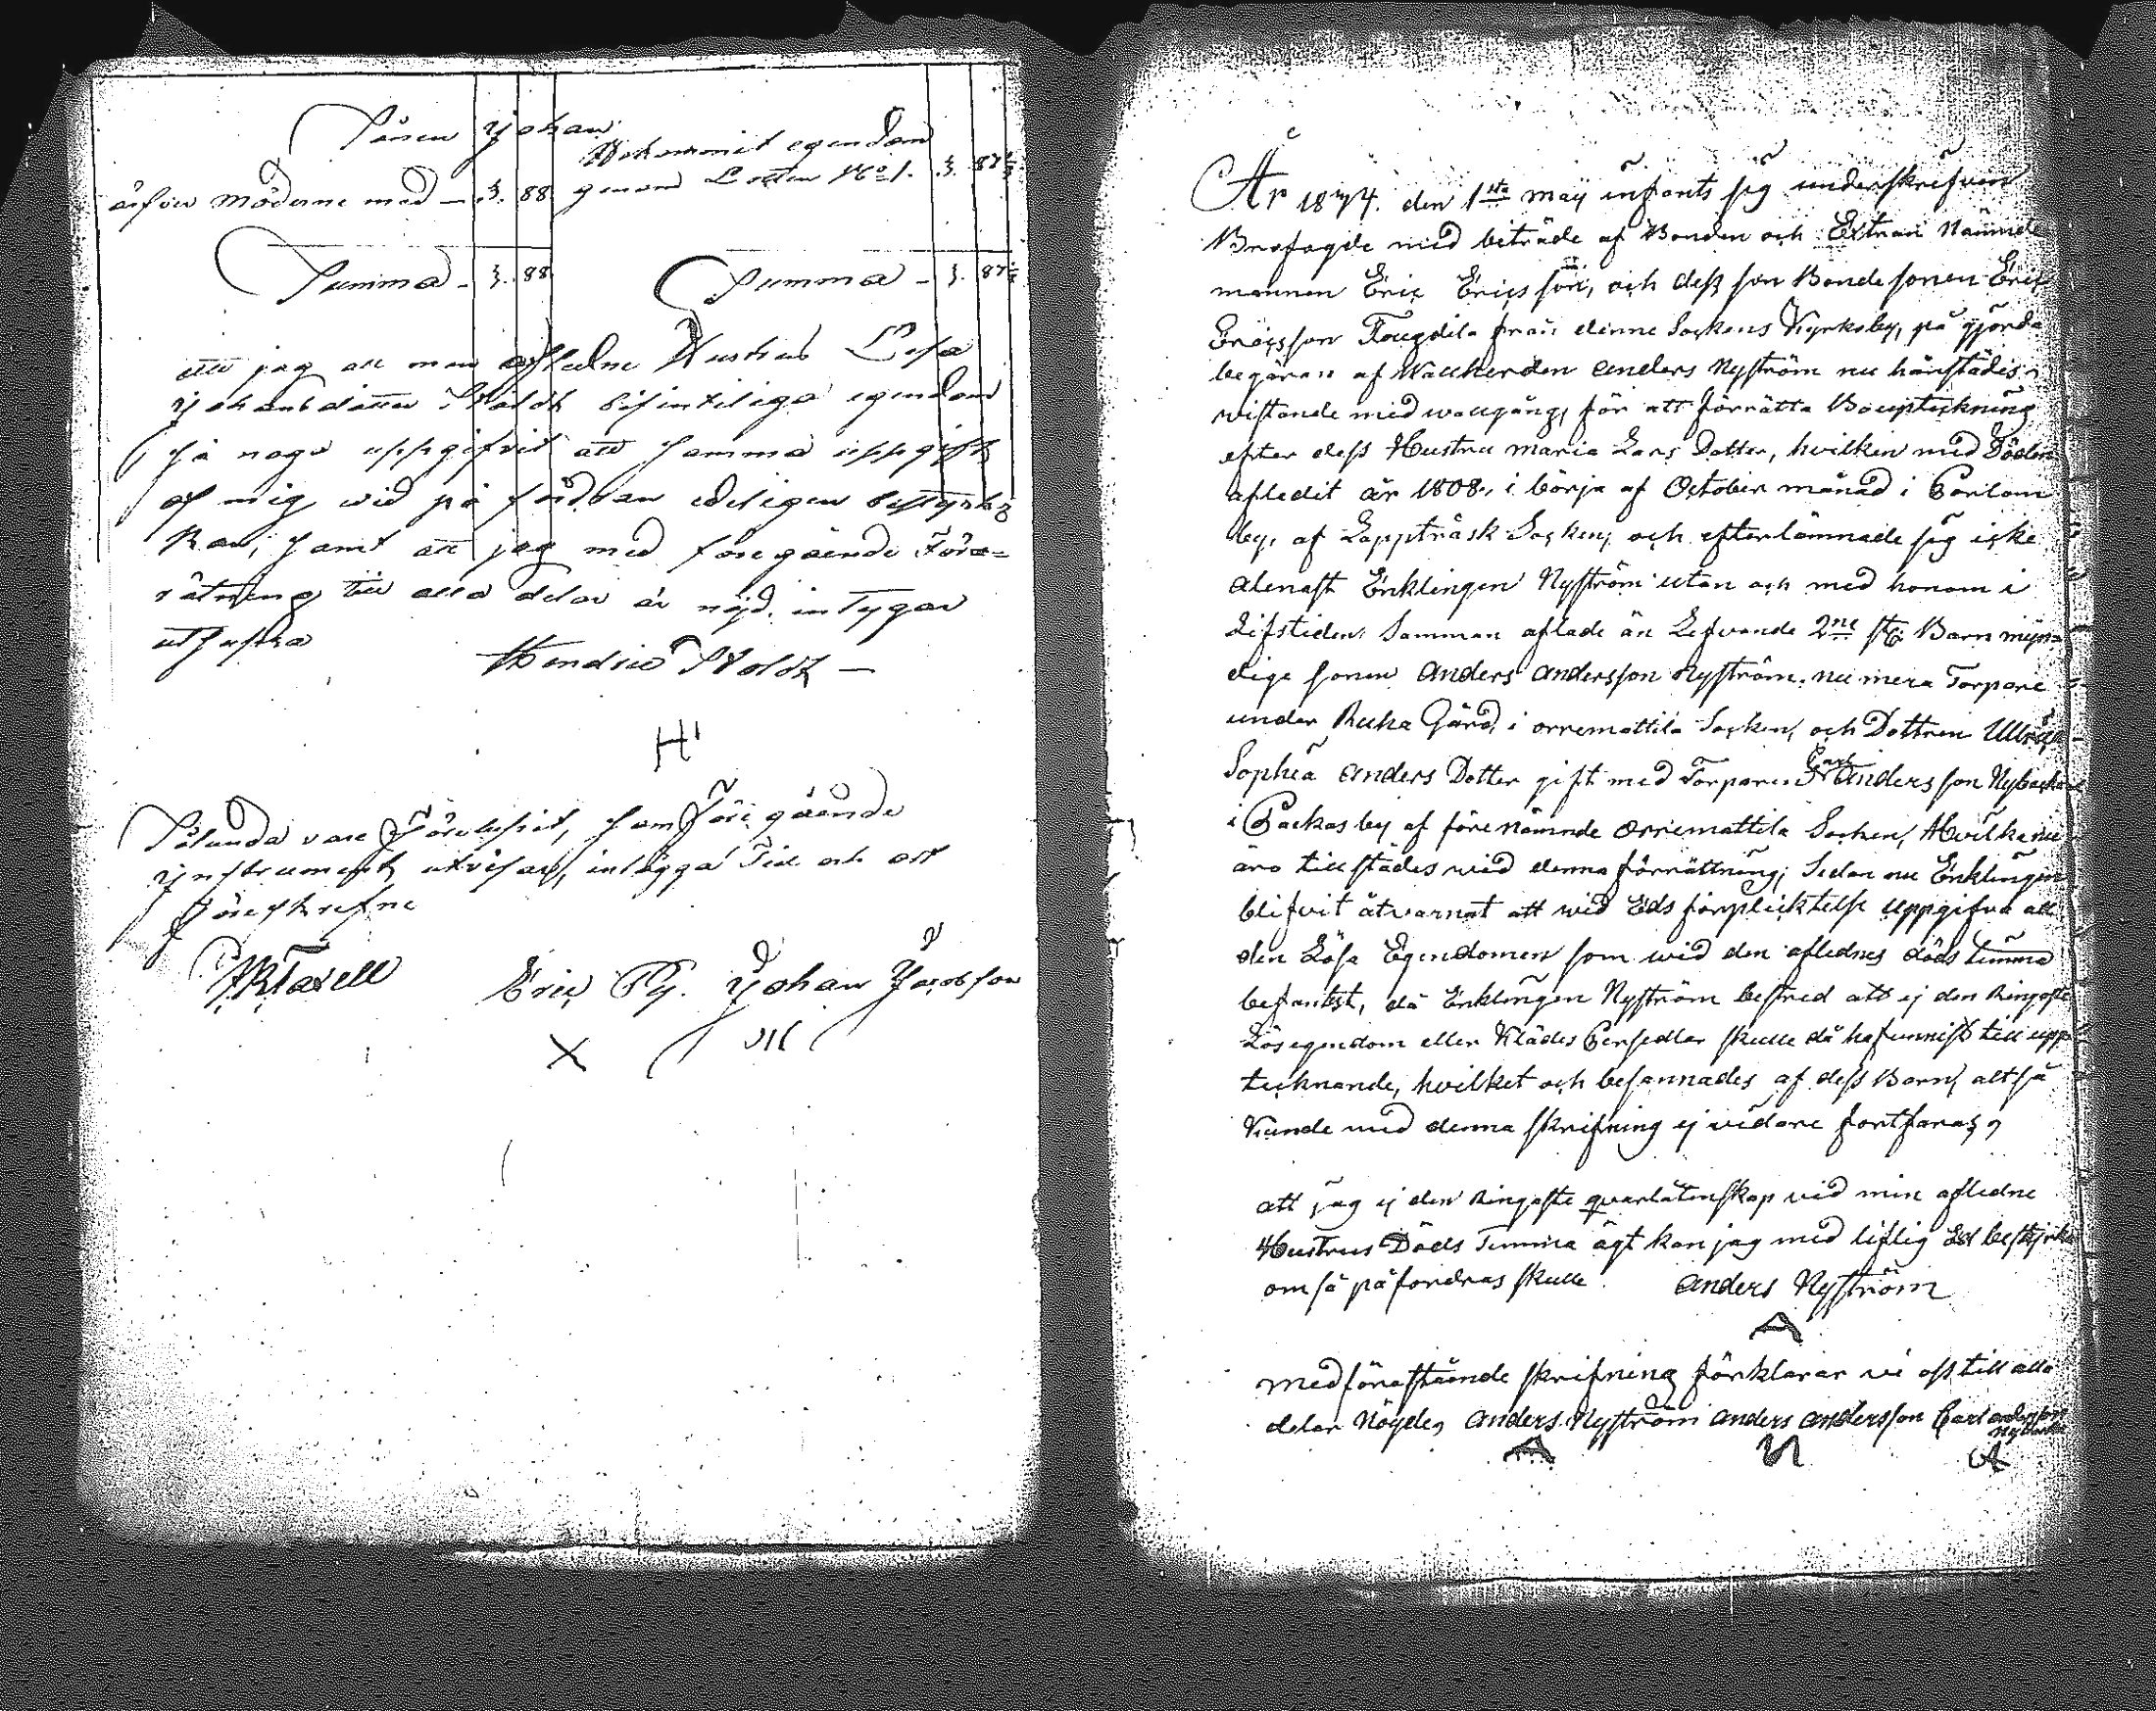 Sonen Johan
ärfver möderne med — 3. 88
Bekommit egendom
genom Lotten No 1. 3. 87½
Summa - 3. 88
Summa - 3. 87½
att jag all min afledne Hustrus Lisa
Johansdotter Stoldt befinteliga egendom
så noga uppgifvit att samma uppgift
af mig vid på fodran edeligen bestyrkes
kan, samt att jag med föregående Förr=
rätning till alla delar är nöjd, intygar
utfästa Hendric Stoldt —
H
Sålunda vara Förelupit, som föregående
Instrument utvisar, intygga Tid och ort
föreskrefne
Eric Johan Jacobsson
År 1814. den 1sta may infants sig underskrefven
Brofogde med beträde af Bonden och Extrar Nämnde
mannen Eric Ericsson, och dess son Bondesonen Eric
Ericsson Tougdila från denne Sockens Kyrkoby, på gjorda
begäran af Wallherden Anders Nyström nu härstädes
vistande med wallgång, för att förrätta Boupteckning
efter dess Hustru Maria Lars Dotter, hvilken med Döden
afledit år 1808., i börja af October månad i Porlom
by, af Lappträsk Socken, och efterlämnade sig icke
alenast Enklingen Nyström utan och med honom i
Lifstiden Samman aflade än Lefvande 2ne st: Barn myn
dige sonen Anders Andersson Nyström, nu mera Torpare
under Ruha Gård, i orremattila Socken, och Dottren Ulrica
Sophia Anders Dotter gift med Torparen Carl Andersson Nybacka
i Packasby af förenämnde Orremattila Socken, Hvilka nu
äro tillstädes wid denna förrättning; Sedan nu Enklingen
blifvit åtvarnat att wid Eds förplicktelse uppgifva all
den Lösa Egendomen som wid den aflednes döds timma
befantst, då Enklingen Nyström bestred att ej den Ringaste
Lösegendom eller Klädes Persedlar skulle då hafunnist till upp
tecknande, hvilket och besannades af dess Barn, altså
Kunde med denna skrifning ej vidare fortfaras,
att jag ej den Ringaste qvarlåtenskap vid min afledne
Hustrus Döds Timma ägt kan jag med liflig Ed bestyrka
om så påfordras skulle. Anders Nyström
A
Med förastående skrifning förklarar vi oss till alla
delar Nöyde, Anders Nyström Anders Andersson Carl Andersson
Nybacka